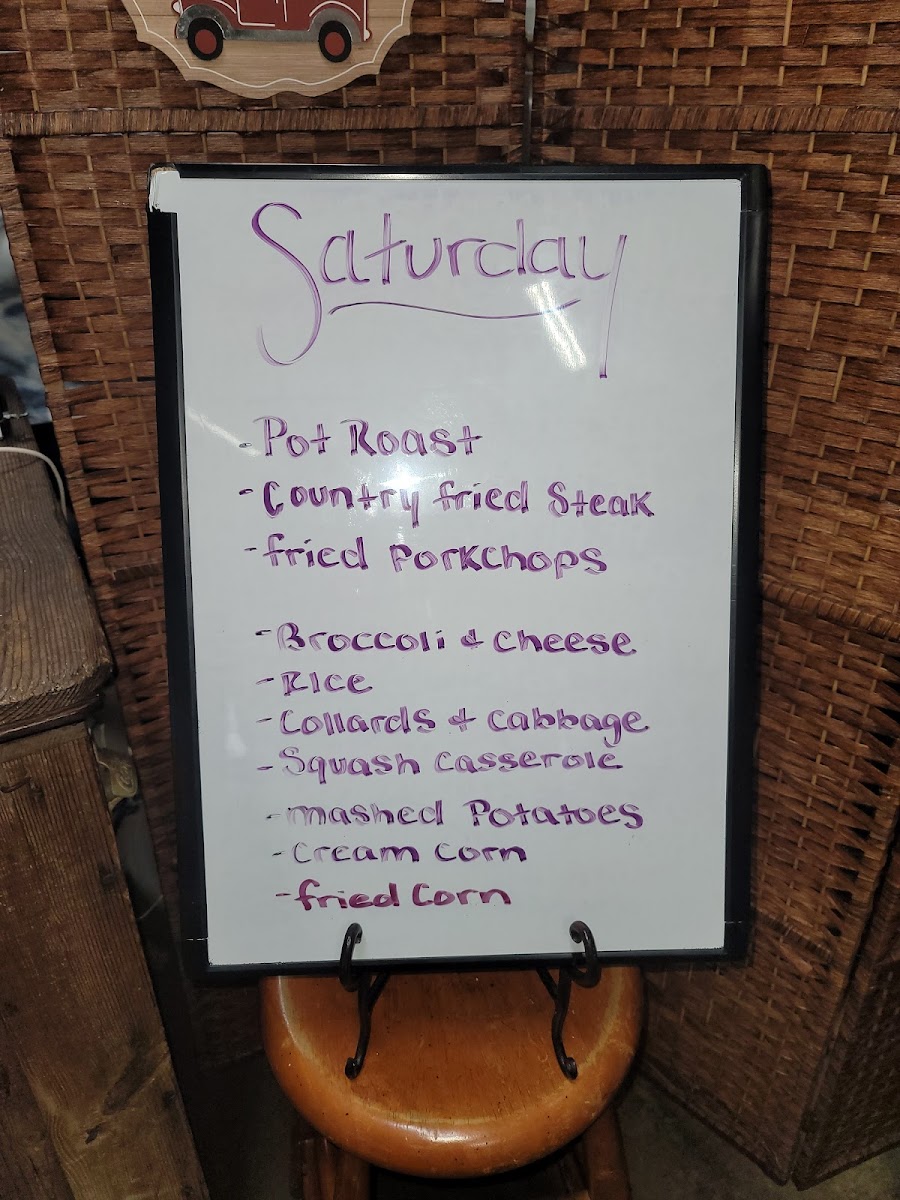 Saturday
- Pot Roast
- Country fried Steak
- fried Porkchops
- Broccoli & Cheese
- Rice
- Collards & Cabbage
- Squash Casserole
- mashed Potatoes
- Cream Corn
- fried Corn